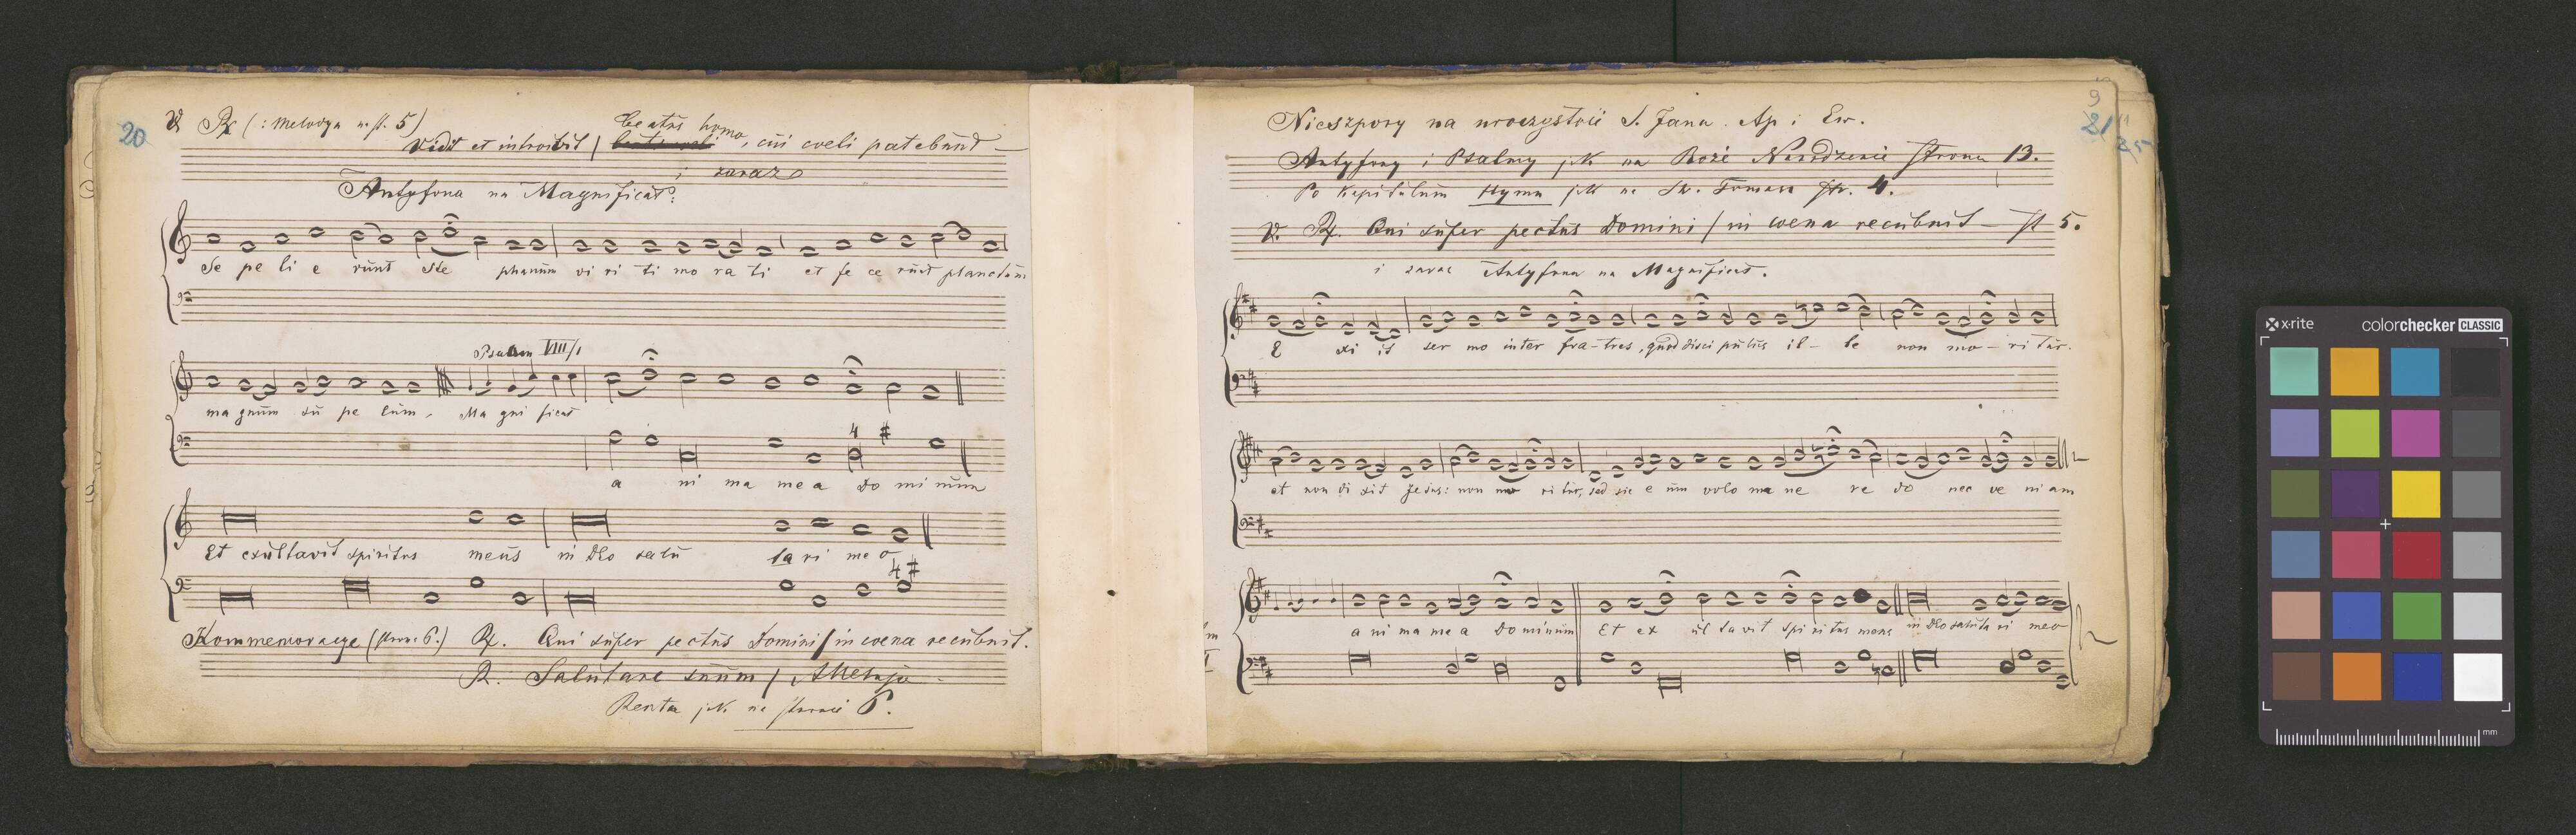 20
℣ ℟ (: Melodya na st. 5)
Vidit et introivit / beatus homo, cui coeli patebant —
i zaraz
Antyfona na Magnificat:
Se pe li e runt Ste phanum vi ri ti mo ra ti et fe ce runt planctum
Psalm VIII/1
ma gnum su pe eum, Ma gni ficat
4 #
a ni ma me a Do mi num
Et exultavit spiritus meus in Deo salu ta ri me o
4 #
Kommemoracye (strona 6.) ℟. Qui super pectus Domini / in coena recubuit.
℟. Salutare suum / Alleluja
Reszta jak na stronie 6.
9
21
11
25
Nieszpory na uroczystość S. Jana Ap i Ew.
Antyfony i Psalmy jak na Boże Narodzenie strona 13.
Po kapitulum Hymn jak na Św. Tomasza str. 4.
℣. ℟. Qui super pectus Domini / in coena recubuit — st 5.
i zaraz Antyfona na Magnificat.
E xi it ser mo inter fra - tres, quod disci pulus il - le non mo - ri tur.
et non di xit Jesus: non mo ri tur, sed sic e um volo ma ne re do nec ve ni am
a ni ma me a Do minum Et ex ul ta vit spi ritus meus in Deo saluta ri meo
x-rite
colorchecker CLASSIC
mm